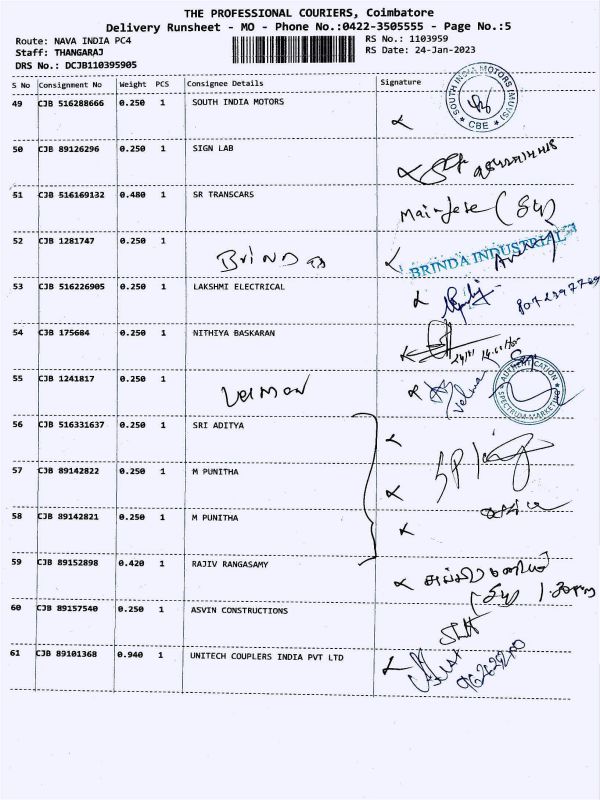 THE PROFESSIONAL COURIERS, Coimbatore
Delivery Runsheet - MO - Phone No.:0422-3505555 - Page No.:5
Route: NAVA INDIA PC4 RS No.: 1103959
Staff: THANGARAJ RS Date: 24-Jan-2023
DRS No.: DCJB110395905
S No Consignment No Weight PCS Consignee Details Signature
49 CJB 516288666 0.250 1 SOUTH INDIA MOTORS
SOUTH INDIA MOTORS (MUVS) CBE
50 CJB 89126296 0.250 1 SIGN LAB
51 CJB 516169132 0.480 1 SR TRANSCARS
52 CJB 1281747 0.250 1
BRINDA INDUSTRIAL
53 CJB 516226905 0.250 1 LAKSHMI ELECTRICAL
54 CJB 175684 0.250 1 NITHIYA BASKARAN
55 CJB 1241817 0.250 1
AUTHENTICATION SPECTRUM MARKETING
56 CJB 516331637 0.250 1 SRI ADITYA
57 CJB 89142822 0.250 1 M PUNITHA
58 CJB 89142821 0.250 1 M PUNITHA
59 CJB 89152898 0.420 1 RAJIV RANGASAMY
60 CJB 89157540 0.250 1 ASVIN CONSTRUCTIONS
61 CJB 89101368 0.940 1 UNITECH COUPLERS INDIA PVT LTD